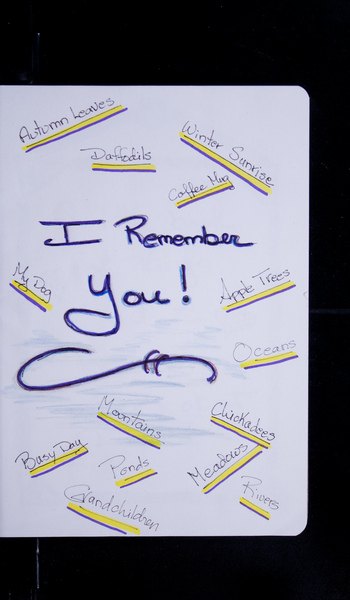 Autumn Leaves
Winter Sunrise
Daffodils
Coffee Mug
I Remember
You!
My Dog
Apple Trees
Oceans
Mountains
Chickadees
Busy Day
Ponds
Meadows
Rivers
Grandchildren